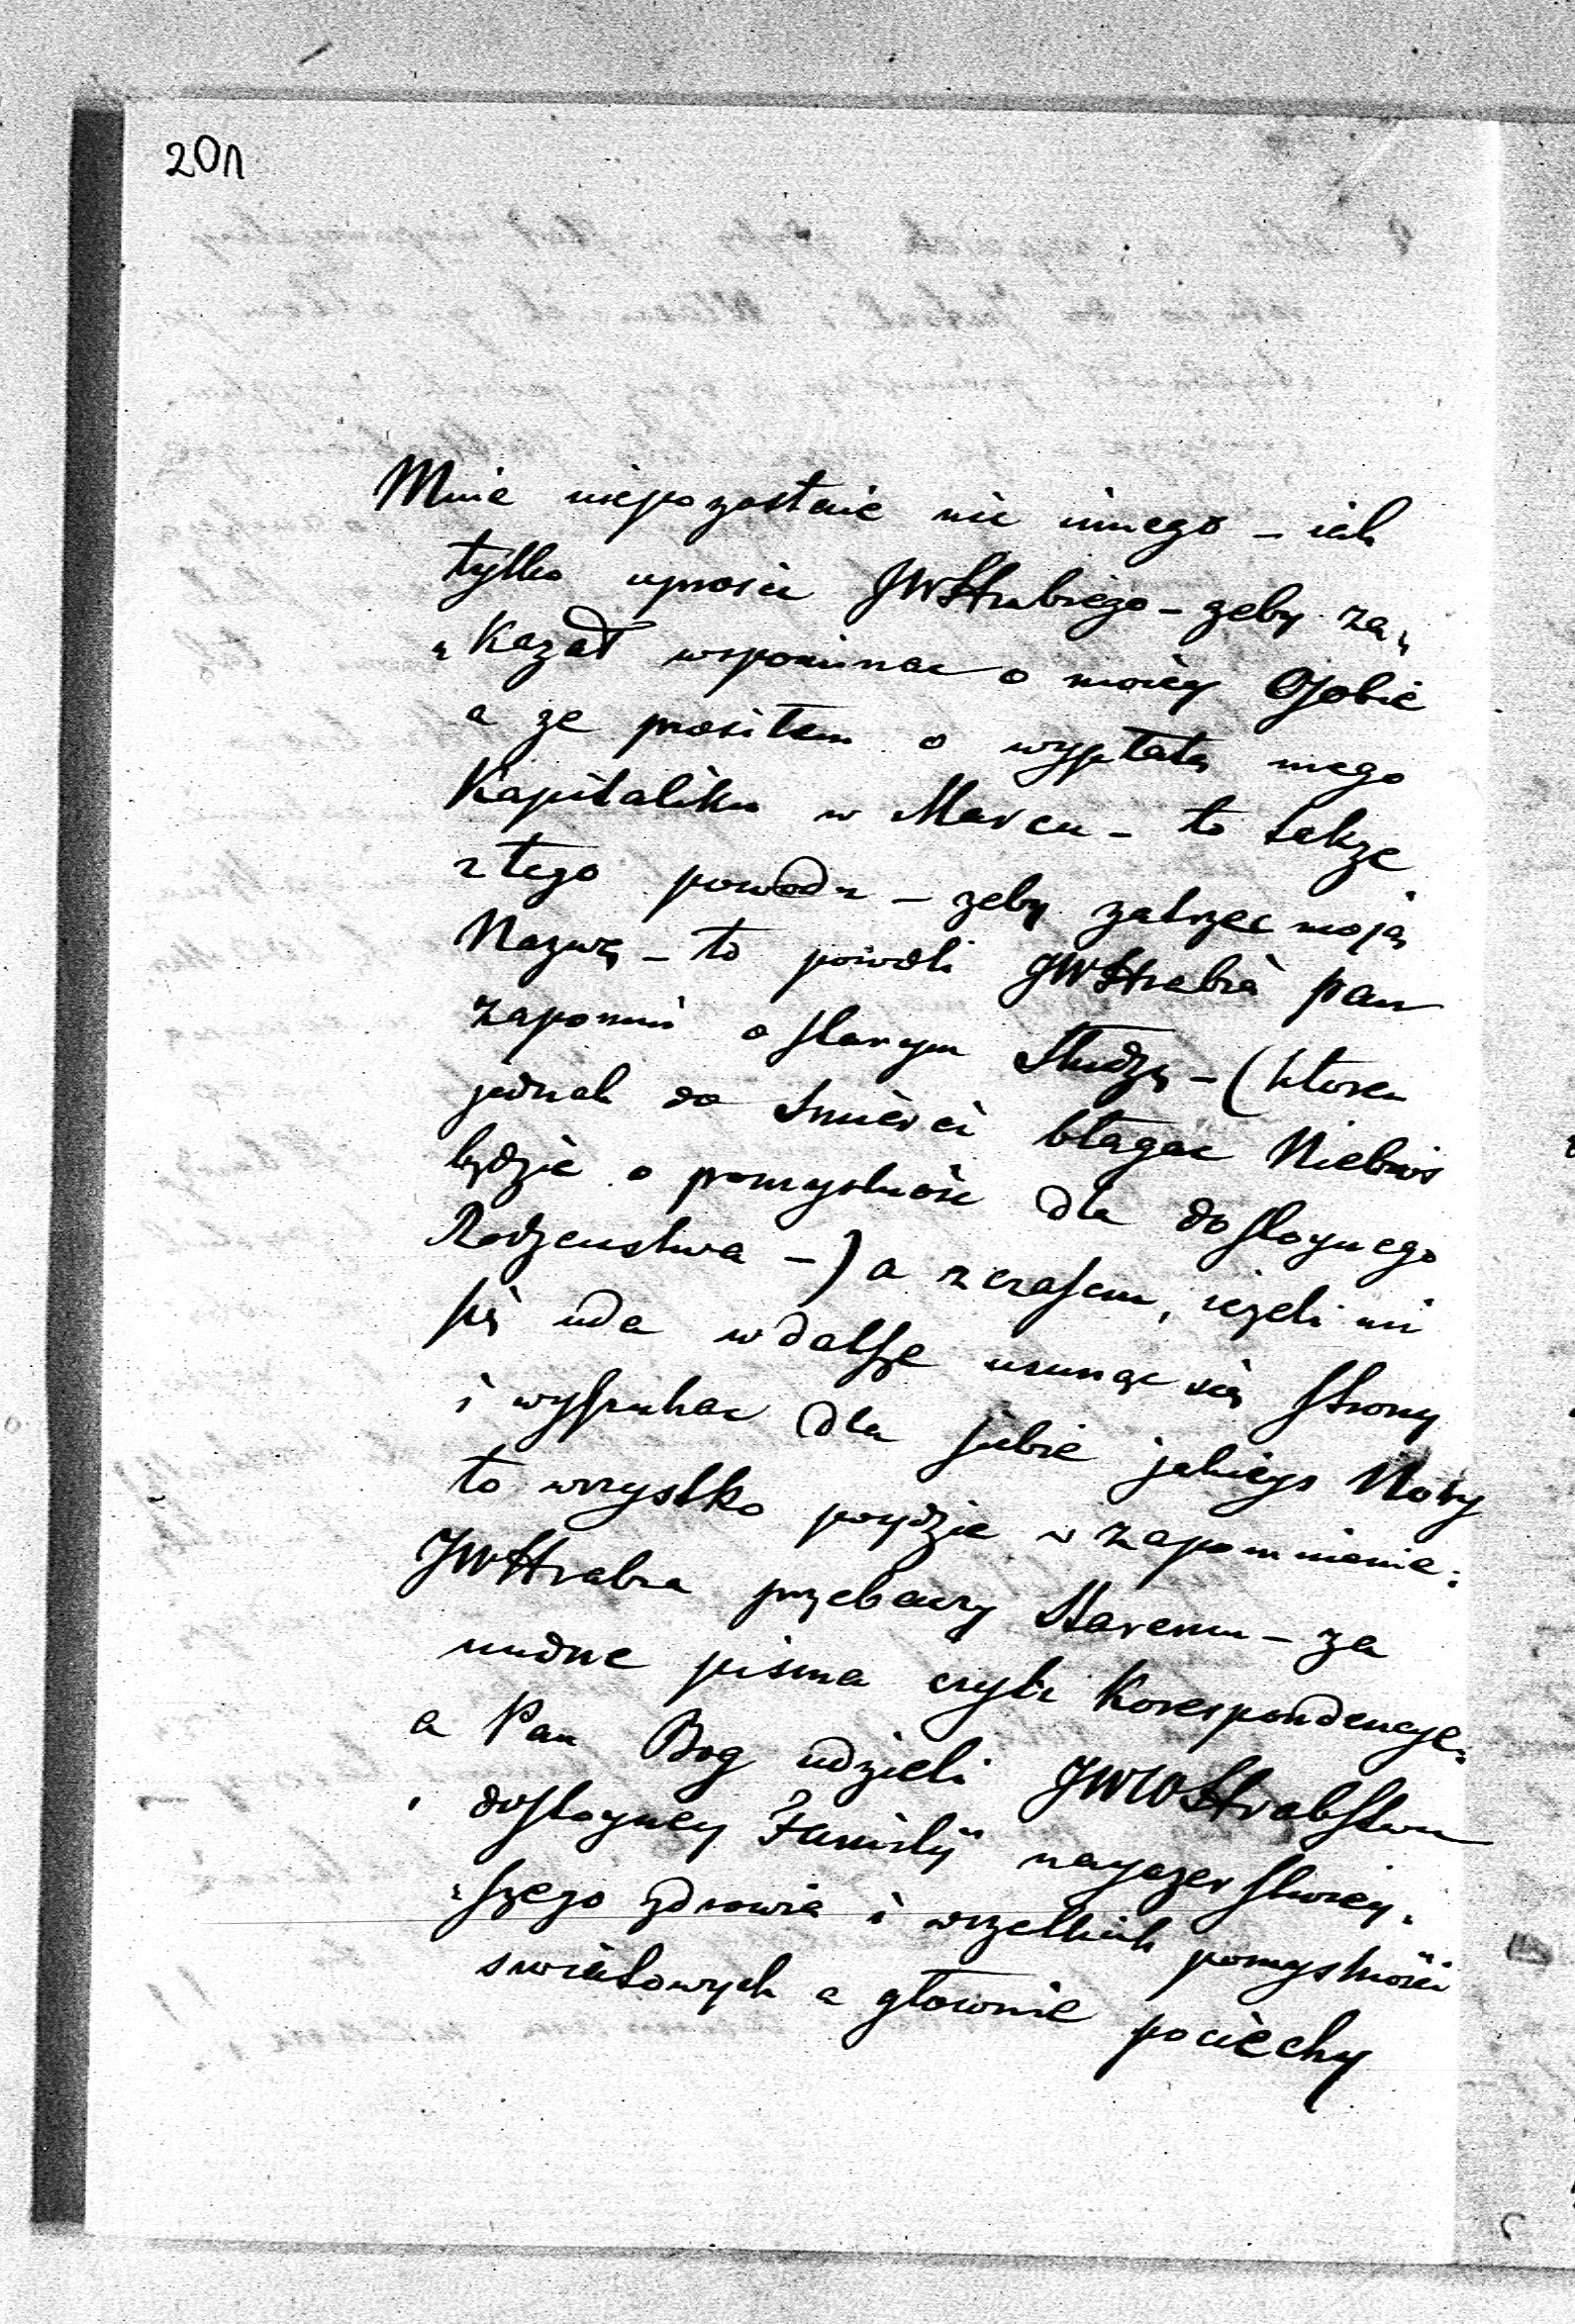 201
Mnie niepozostaie nic innego – iak
tylko uprosic JWHrabiego – zeby za„
„kazał wspominac o moiey Osobie
a ze prosiłem o wypłatę mego
Kapitaliku w Marcu – to takze
z tego powodu – zeby zatrzec moją
Nazwę – to powoli JWHrabia pan
zapomni o starym Słudzę – (ktoren
jednak do Smierci błagac Niebios
będzie o pomyslnosc dla dostoynego
Rodzenstwa –) a z czasem, iezeli mi
się uda w dalsze usunąc się Strony
i wyszukac dla siebie jakiego
to wszystko poydzie w zapomnienie.
JWHrabia przebaczy Staremu – za
nudne pisma czyli Korespondencye
a Pan Bog udzieli JWWHrabstwu
i dostoyney Familÿ nayczerstwiey„
„szego zdrowia i wszelkich pomyslnosci
swiatowych a głownie pociechy